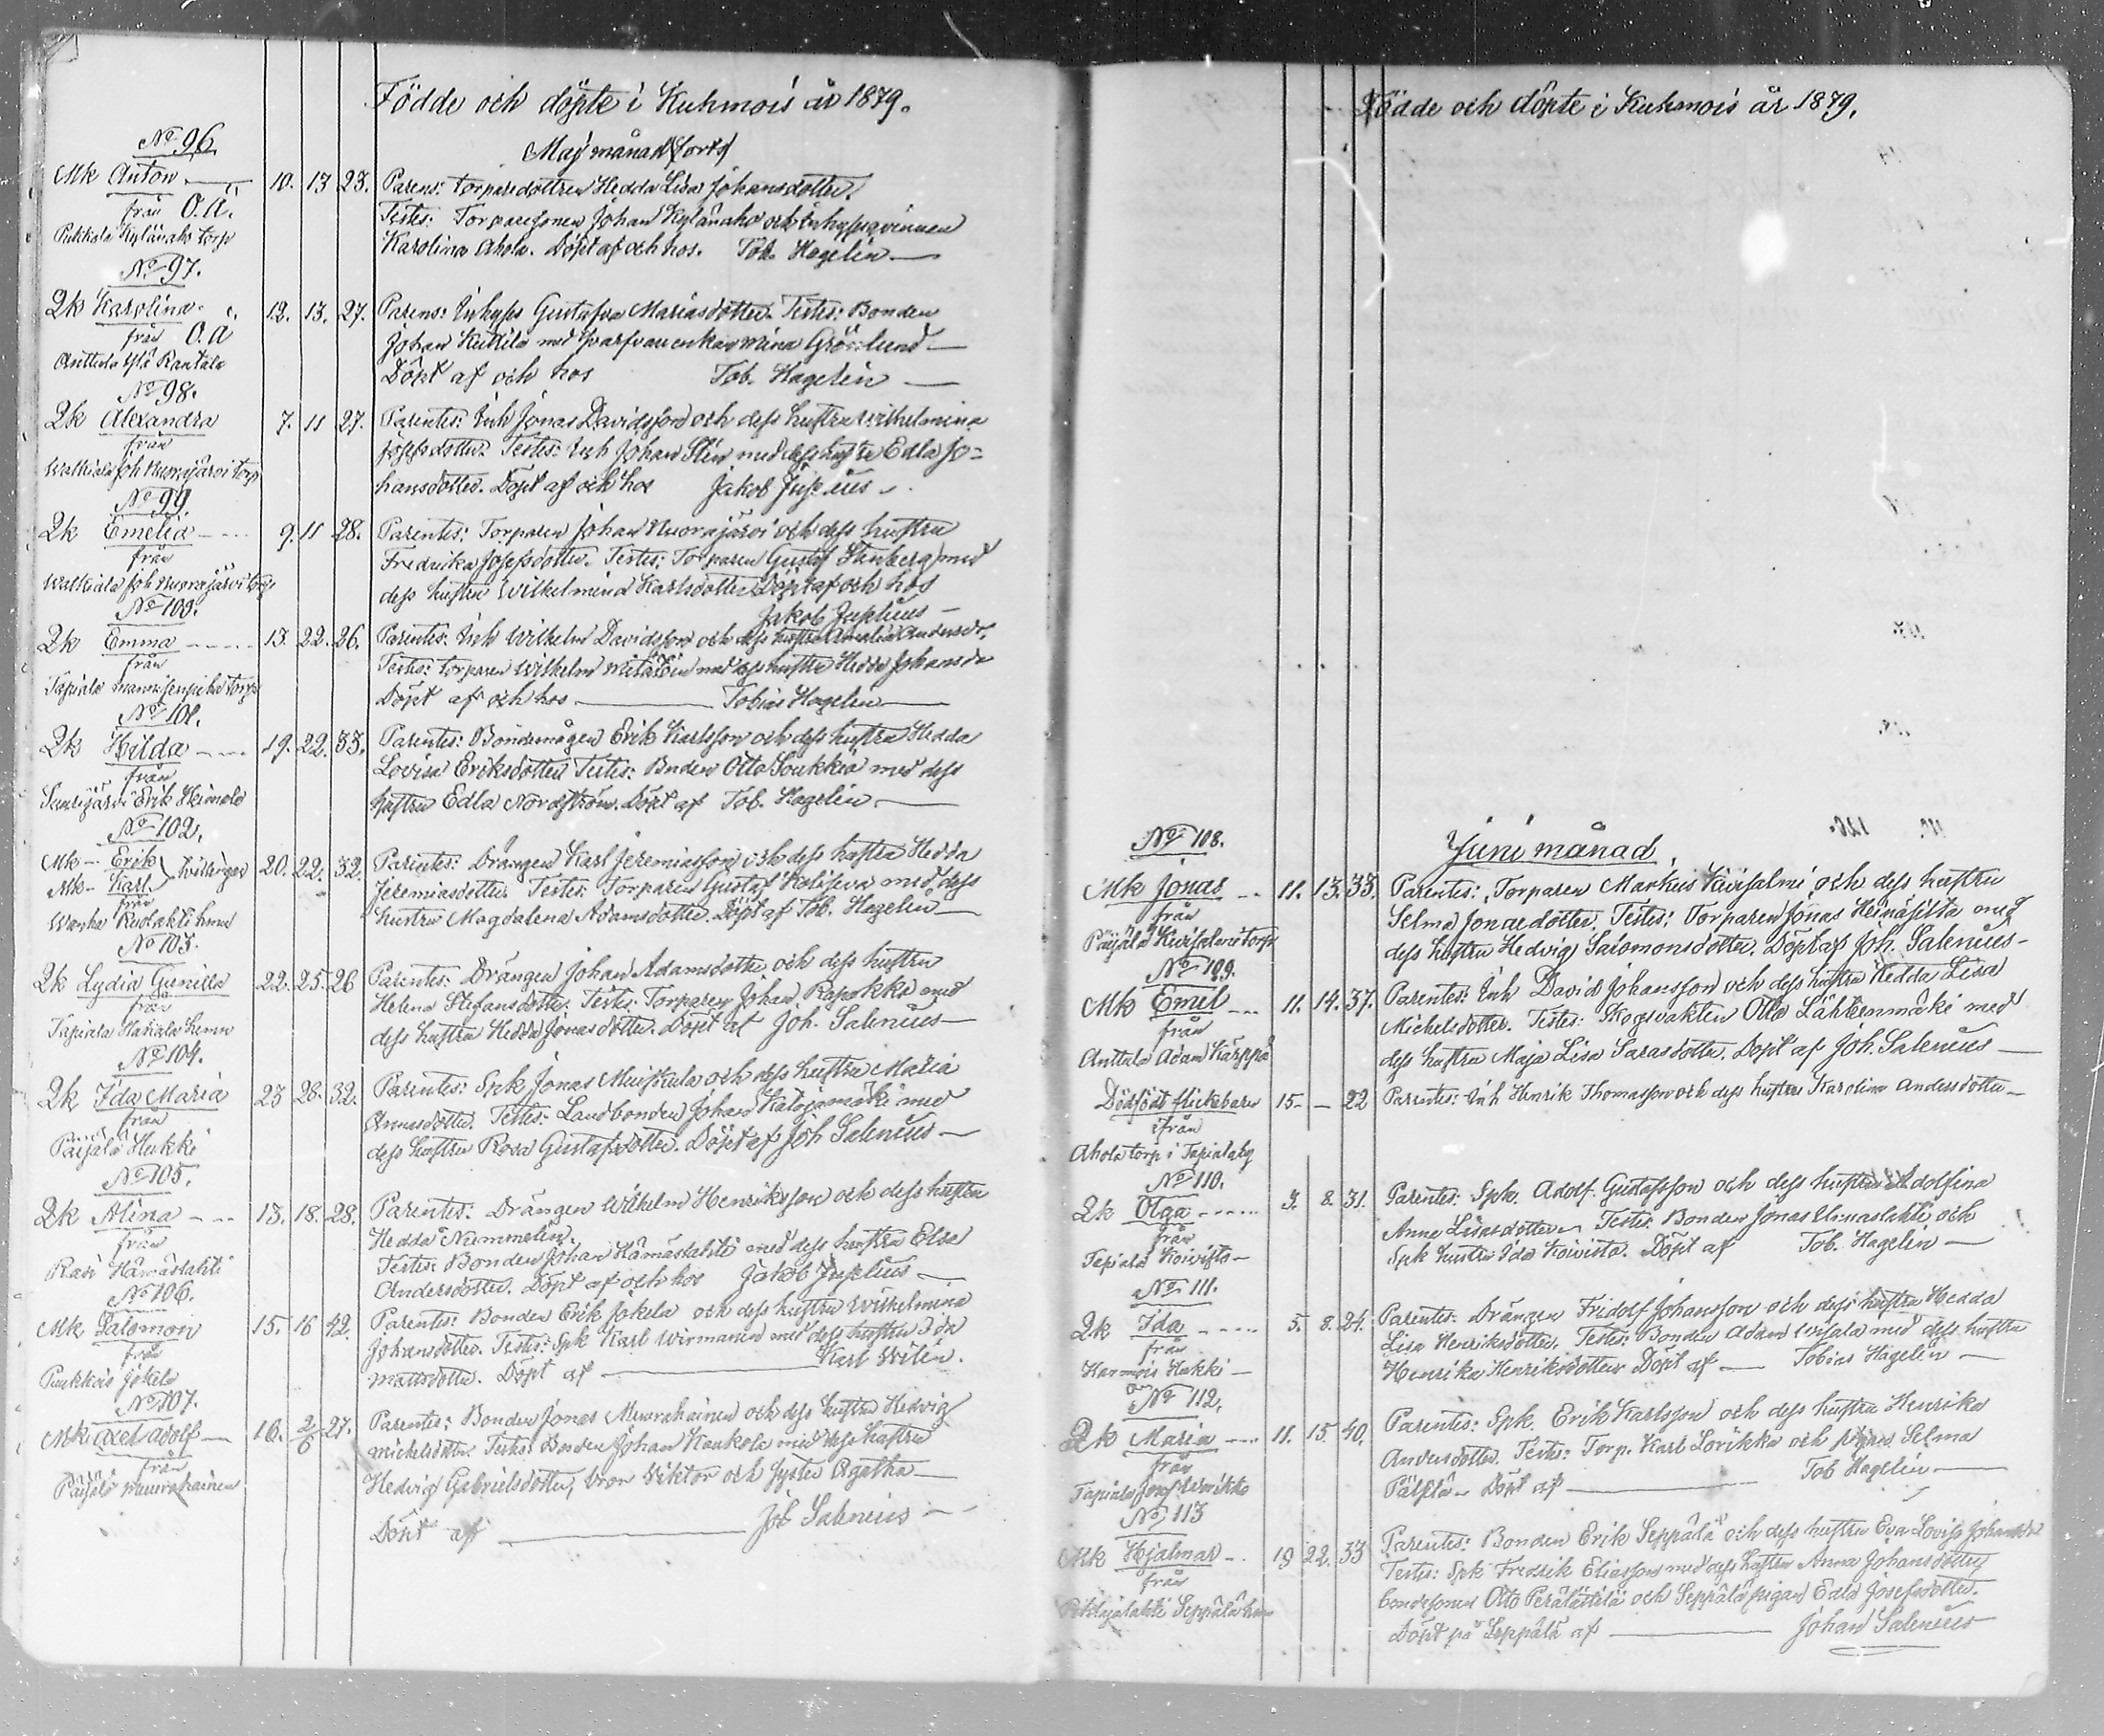 Födde och döpte i Kuhmois år 1879.
Maj månad (forts)
No 96.
Mk Anton
från O.Ä.
Pukkala Kylänaho torp
10. 13 23.
Parens: torparedottren Hedda Lisa Johansdotter.
Testes: Torparesonen Johan Kylänaho och Inhysesqvinnan
Karolina Ahola. Döpt af och hos. Tob. Hagelin
No 97.
Qk Karolina
från O.Ä
Anttula Ylä Rantala
12. 13. 27.
Parens: Inhyses Gustafva Mariasdotter. Testes: Bonden
Johan Kuttila med enkan Mina Grönlund
Döpt af och hos Tob. Hagelin
No 98.
Qk Alexandra
från
Walkiala Joh Nuorajärvi torp
7. 11 27.
Parentes: Inh Jonas Davidsson och dess hustru Wilhelmina
Josefsdotter. Testes: Inh Johan Sten med dess hustru Edla Jo=
hansdotter. Döpt af och hos Jakob Juselius
No 99.
Qk Emelia
från
Walkiala Joh Nuorajärvi torp
9. 11 28.
Parentes: Torparen Johan Nuorajärvi och dess hustru
Fredrika Josefsdotter. Testes: Torparen Gustaf Stenberg med
dess hustru Wilhelmina Karlsdotter Döpt af och hos
Jakob Juselius
No 100.
Qk Emma
från
Tapiala torp
13. 22. 26.
Parentes: Inh Wilhelm Davidsson och dess hustru Amalia Andersdr.
Testes: torparen Wilhelm med dess hustru Hedda Johansdr
Döpt af och hos Tobias Hagelin
No 101.
Qk Hilda
från
Sunijärvi Erik Heimola
19. 22. 33.
Parentes: Bondemågen Erik Karlsson och dess hustru Hedda
Lovisa Eriksdotter Testes: Bnden Otto Soukkia med dess
hustru Edla Nordström. Döpt af Tob. Hagelin
No 102.
Mk Erik
Mk Karl tvillingar
från
Wanha Ruolahti hmn
20. 22. 32.
Parentes: Drängen Karl Jeremiasson och dess hustru Hedda
Jeremiasdotter. Testes: Torparen Gustaf Koliseva med dess
hustru Magdalena Adamsdotter. Döpt af Tob. Hagelin
No 103.
Qk Lydia Gunilla
från
Tapiala Hakala hmn
22. 25. 26
Parentes: Drängen Johan Adamsdotter och dess hustru
Helena Stefansdotter. Testes: Torparen Johan Rapokka med
dess hustru Hedda Jonasdotter. Döpt af Joh. Salenius
No 104.
Qk Ida Maria
från
Päijälä Heikki
23 28. 32.
Parentes: Spk Jonas Muiskula och dess hustru Maria
Annasdotter. Testes: Landbonden Johan Katajamäki med
dess hustru Rosa Gustafsdotter. Döpt af Joh Salenius
No 105.
Qk Alina
från
Rasi Hämäslahti
13. 18. 28.
Parentes: Drängen Wilhelm Henriksson och dess hustru
Hedda Nummelin.
Testes: Bonden Johan Hämäslahti med dess hustru Elsa
Andersdotter. Döpt af och hos Jakob Juselius
No 106.
Mk Salomon
från
Puukkois Jokela
15. 16 42.
Parentes: Bonden Erik Jokela och dess hustru Wilhelmina
Johansdotter. Testes: Spk Karl Wirmanen med dess hustru Ida
Mattsdotter. Döpt af Karl Widén.
No 107.
Mk Axel Adolf
från
Päijälä Muurahainen
16. 2/6 27.
Parentes: Bonden Jonas Muurahainen och dess hustru Hedvig
Michelsdotter. Testes: Bonden Johan Kaukola med dess hustru
Hedvig Gabrielsdotter, bror Viktor och syster Agatha
Döpt af Joh Salenius
Födde och döpte i Kuhmois år 1879.
Juni månad.
No 108.
Mk Jonas
från
Päijälä Kivisalmi torp
11. 13. 33.
Parentes: Torparen Markus Kivisalmi och dess hustru
Selma Jonaedotter. Testes: Torparen Jonas Heinäsilta med
dess hustru Hedvig Salomonsdotter. Döpt af Joh. Salenius
No 109.
Mk Emil
från
Anttula Adam Kärppä
11. 14. 37.
Parentes: Inh David Johansson och dess hustru Hedda Lisa
Michelsdotter. Testes: Skogsvakten Otto Lähteenmäki med
dess hustru Maja Lisa Sarasdotter. Döpt af Joh. Salenius
Dödfödt flickebarn
ifrån
Ahola torp i Tapiala by
15. — 22
Parentes: Inh Henrik Thomasson och dess hustru Karolina Andersdotter
No 110.
Qk Olga
från
Tapiala Koivisto
3. 8. 31.
Parentes: Spk. Adolf Gustafsson och dess hustru Adolfina
Anna Lisasdotter. Testes: Bonden Jonas Uimaslahti och
Spk hustru Ida Koivisto. Döpt af Tob. Hagelin
No 111.
Qk Ida
från
Harmois Hakki
5. 8. 24.
Parentes: Drängen Fridolf Johansson och dess hustru Hedda
Lisa Henriksdotter. Testes: Bonden Adam med dess hustru
Henrika Henriksdotter Döpt af Tobias Hagelin
No 112.
Qk Maria
från
Tapiala
11. 15. 40.
Parentes: Spk. Erik Karlsson och dess hustru Henrika
Andersdotter. Testes: Torp. Karl Lorikka och pigan Selma
Pätilä. Döpt af Tob Hagelin
No 113
Mk Hjalmar
från
Pihlajalahti Seppälä hmn
19 22. 33
Parentes: Bonden Erik Seppälä och dess hustru Eva Lovisa Johansdr
Testes: Spk Fredrik Eliasson med dess hustru Anna Johansdotter
bondesonen Otto Perälättilä och Seppälä pigan Edla Josefsdotter.
Döpt på Seppälä af Johan Salenius